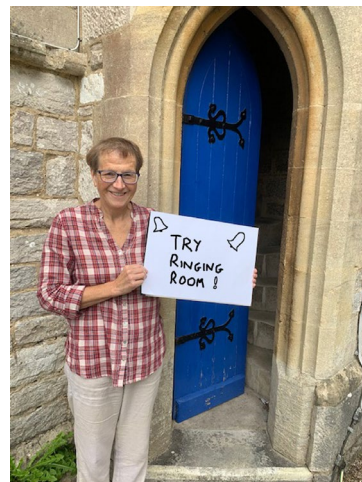 TRY
RINGING
ROOM !